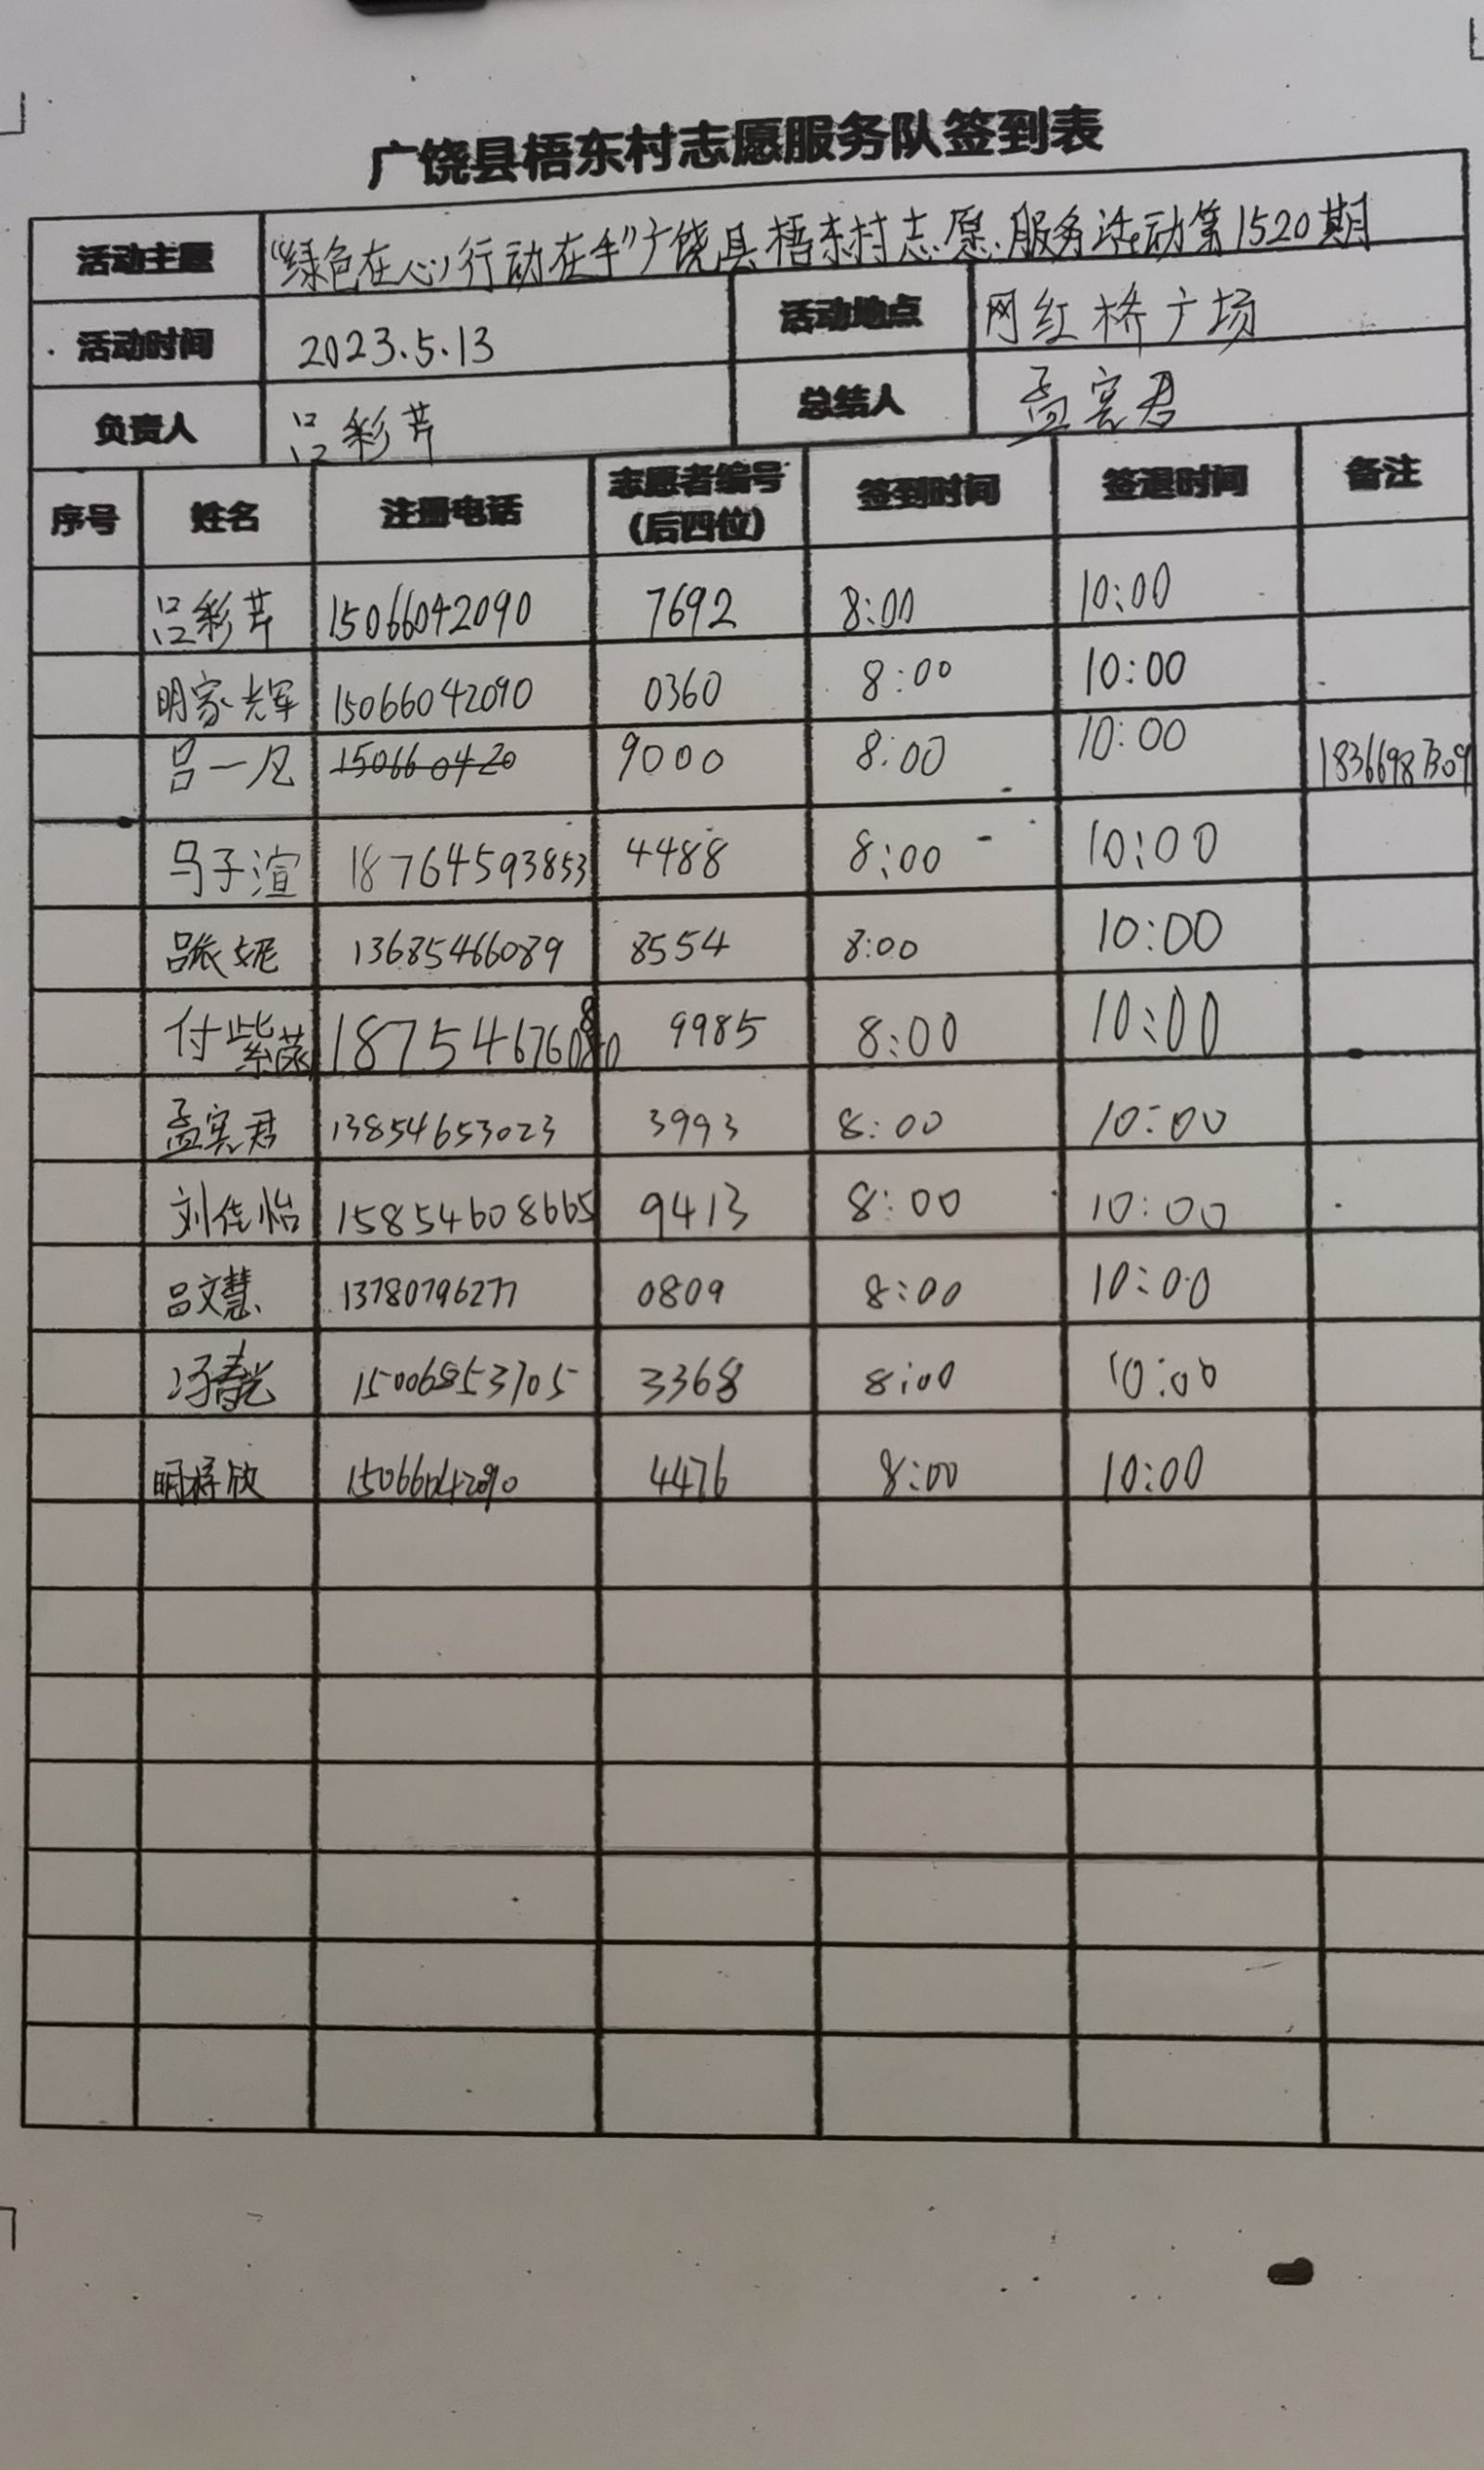 广饶县梧东村志愿服务队签到表
活动主题 “绿色在心，行动在手”广饶县梧东村志愿服务活动第1520期
活动时间 2023.5.13 活动地点 网红桥广场
负责人 吕彩芹 总结人 孟宪君
序号 姓名 注册电话 志愿者编号（后四位） 签到时间 签退时间 备注
吕彩芹 15066042090 7692 8:00 10:00
明家辉 15066042090 0360 8:00 10:00
吕一凡 150660420 9000 8:00 10:00
马子渲 18764593853 4488 8:00 10:00
吕依妮 13685466089 8554 8:00 10:00
付紫涵 9985 8:00 10:00
孟宪君 13854653023 3993 8:00 10:00
刘佳怡 15854608665 9413 8:00 10:00
吕文慧 13780796277 0809 8:00 10:00
冯春光 15006853705 3368 8:00 10:00
明梓欣 15066042090 4476 8:00 10:00